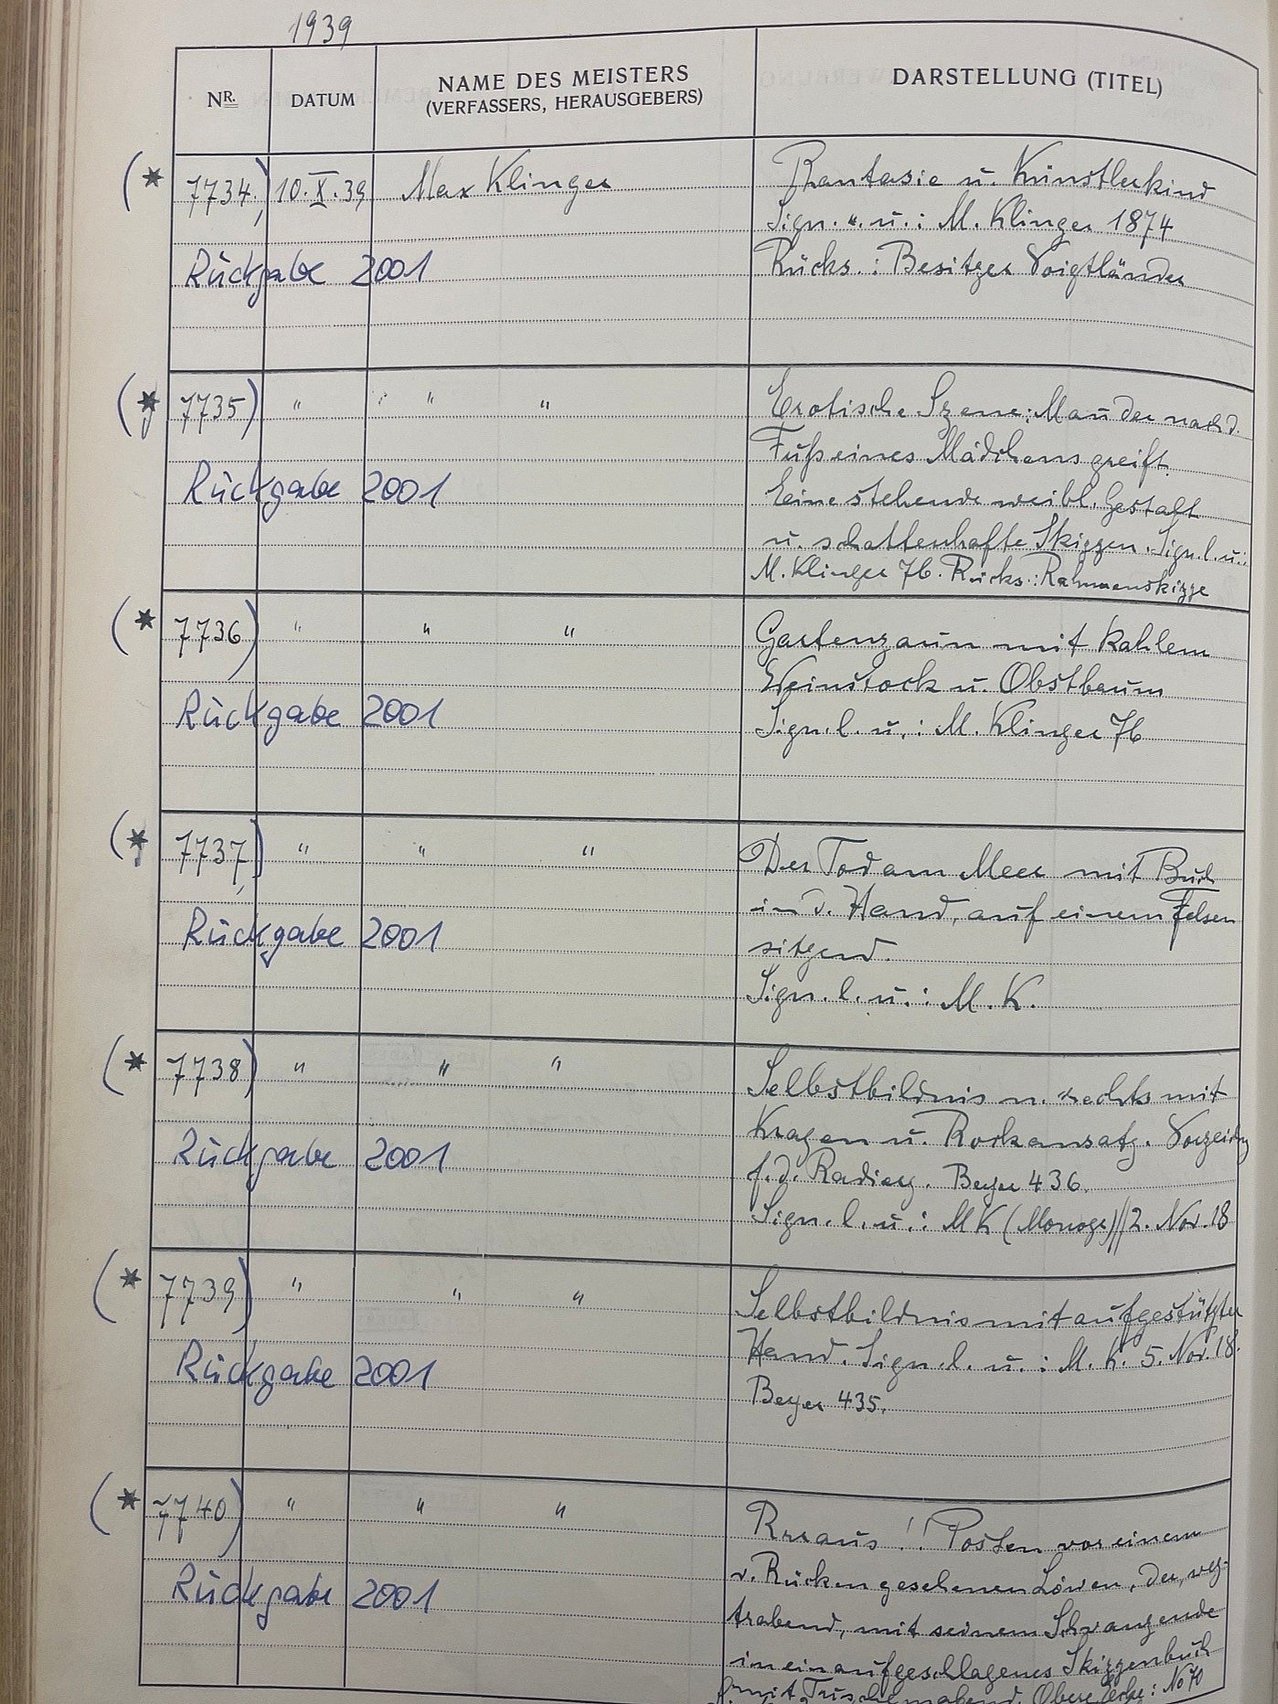 1939
NR. DATUM NAME DES MEISTERS DARSTELLUNG (TITEL)
(VERFASSERS, HERAUSGEBERS)
(* 7734.) 10.X.39 Max Klinger Phantasie u. Künstlerkind
Sign. u.: M. Klinger 1874
Rückgabe 2001 Rücks.: Besitzer Voigtländer
(* 7735) " " " Erotische Szene: Mann der nach d.
Fuß eines Mädchens greift.
Rückgabe 2001 Eine stehende weibl. Gestalt
u. schattenhafte Skizzen. Sign. l. u.:
M. Klinger 76. Rücks.: Rahmenskizze
(* 7736) " " " Gartenzaun mit kahlem
Weinstock u. Obstbaum
Rückgabe 2001 Sign. l. u.: M. Klinger 76
(* 7737) " " " Der Tod am Meer mit Buch
in d. Hand, auf einem Felsen
Rückgabe 2001 sitzend.
Sign. l. u.: M. K.
(* 7738) " " " Selbstbildnis n. rechts mit
Kragen u. Rockansatz. Vorzeichg
Rückgabe 2001 f. d. Radierg. Beyer 436.
Sign. l. u.: MK (Monogr) // 2. Nov. 18
(* 7739) " " " Selbstbildnis mit aufgestützter
Hand. Sign. l. u.: M. K. 5. Nov. 18.
Rückgabe 2001 Beyer 435.
(* 7740) " " " Rrraus!! Posten vor einem
v. Rücken gesehenen Löwen, der, weg-
Rückgabe 2001 trabend, mit seinem Schwanzende
in ein aufgeschlagenes Skizzenbuch
mit Tusche Obere Ecke: No 70